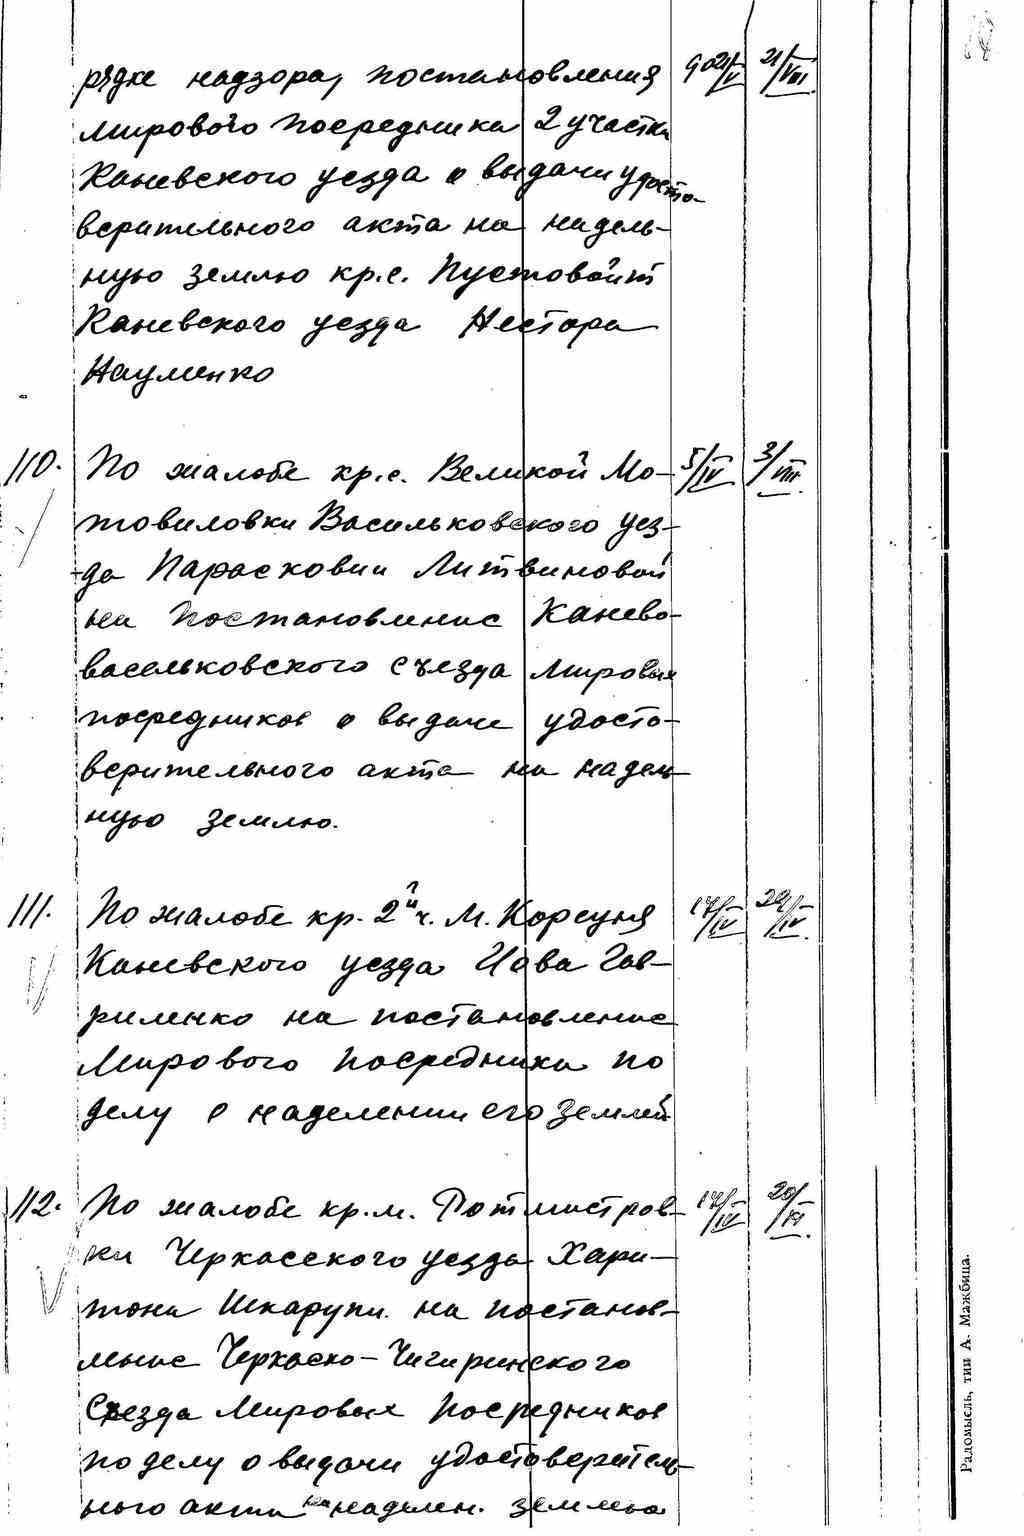 рядке надзора, постановления
мирового посредника 2 участка
Каневского уезда о выдачи удосто-
верительного акта на надель-
ную землю кр.с. Пустовойт
Каневского уезда Нестора
Науменко
902/IV 21/VIII
110. По жалобе кр.с. Великой Мо-
товиловки Васильковского уез-
да Парасковии Литвиновой
на постановление Канево-
васельковского съезда мировых
посредников о выдаче удосто-
верительного акта на надель
ную землю.
5/IV 3/VIII
111. По жалобе кр. 2й ч. м. Корсуня
Каневского уезда Иова Гав-
риленко на постановление
Мирового посредника по
делу о наделении его землей
17/IV 29/IV
112. По жалобе кр.м. Ротмистров-
ки Черкасского уезда Хари-
тона Шкарупи на постанов-
ление Черкаско-Чигиринского
Съезда Мировых Посредников
по делу о выдачи удостоверитель-
ного акта на наделен. землею
17/IV 20/VI
Радомысль, тип А. Мажбица.